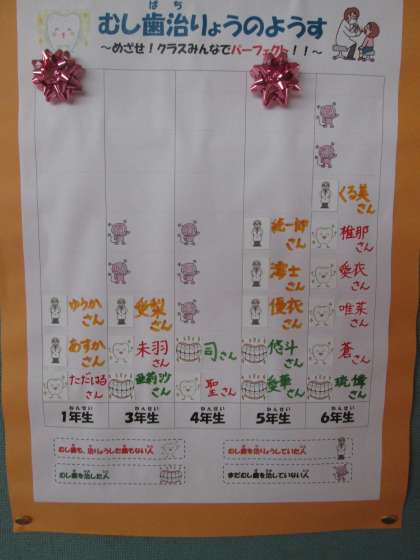 むし歯治りょうのようす
ばち
～めざせ！クラスみんなでパーフェクト！！～
くる美さん
統一郎さん
椎那さん
愛衣さん
ゆうかさん
愛梨さん
優衣さん
唯菜さん
あすかさん
朱羽さん
司さん
悠斗さん
蒼さん
ただはるさん
亜莉沙さん
聖さん
愛華さん
1年生
3年生
4年生
5年生
6年生
むし歯も、治りょうした歯もない人
むし歯を治りょうしていた人
むし歯を治した人
まだむし歯を治していない人